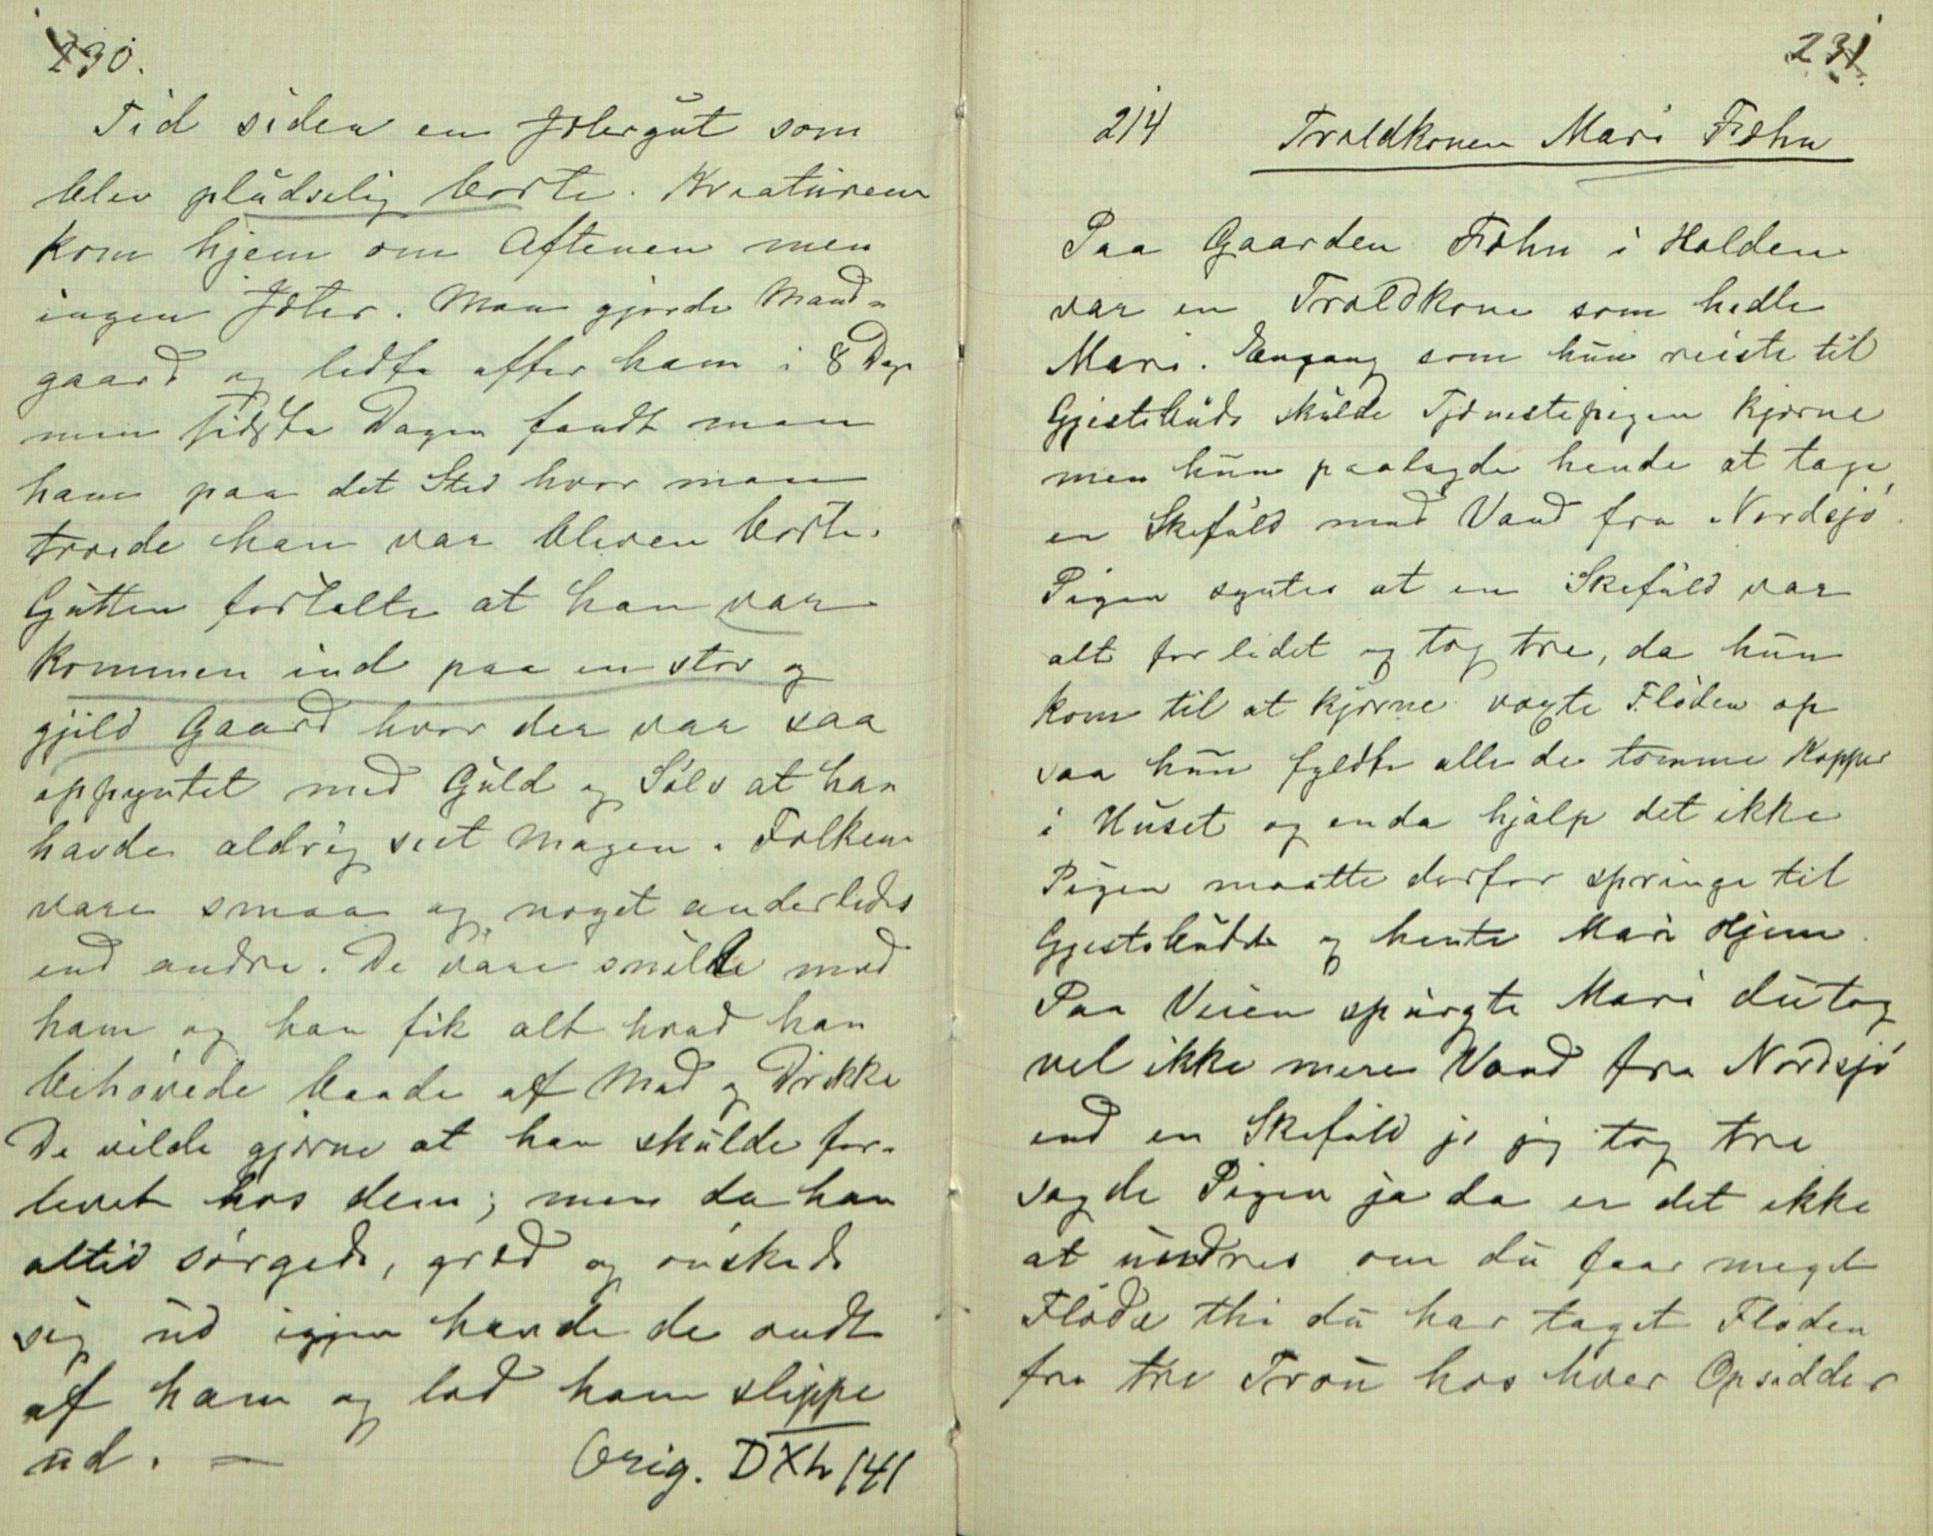 230.
Tid siden en Jætergut som
blev pludselig borte. Kreaturene
kom hjem om Aftenen men
ingen Jæter. Man gjorde Mand-
gaard og ledte efter ham i 8 Dage
men sidste Dagen fandt man
ham paa det Sted hvor man
troede han var bleven borte.
Gutten fortalte at han var
kommen ind paa en stor og
gjild Gaard hvor der var saa
oppyntet med Guld og Sølv at han
havde aldrig seet Magen. Folkene
vare smaa og noget anderledes
end andre. De vare snille mod
ham og han fik alt hvad han
behøvede baade af Mad og Drikke
De vilde gjerne at han skulde for-
blevet hos dem; men da han
altid sørgede, græd og ønskede
sig ud igjen havde de ondt
af ham og lod ham slippe
ud. —
Orig. DXh 141
231.
214 Troldkonen Mari Fæhn
Paa Gaarden Fæhn i Holden
var en Troldkone som hedte
Mari. Engang som hun reiste til
Gjestebuds skulde Tjenestepigen kjerne
men hun paalagde hende at tage
en Skefuld med Vand fra Nordsjø.
Pigen syntes at en Skefuld var
alt for lidet og tog tre, da hun
kom til at kjerne voxte Fløden op
saa hun fyldte alle de tomme Kopper
i Huset og enda hjalp det ikke
Pigen maatte derfor springe til
Gjestebudet og hente Mari Hjem.
Paa Veien spurgte Mari du tog
vel ikke mere Vand fra Nordsjø
end en Skefuld jo jeg tog tre
sagde Pigen ja da er det ikke
at undres om du faar meget
Fløde thi du har taget Fløden
fra tre Trau hos hver Opsidder